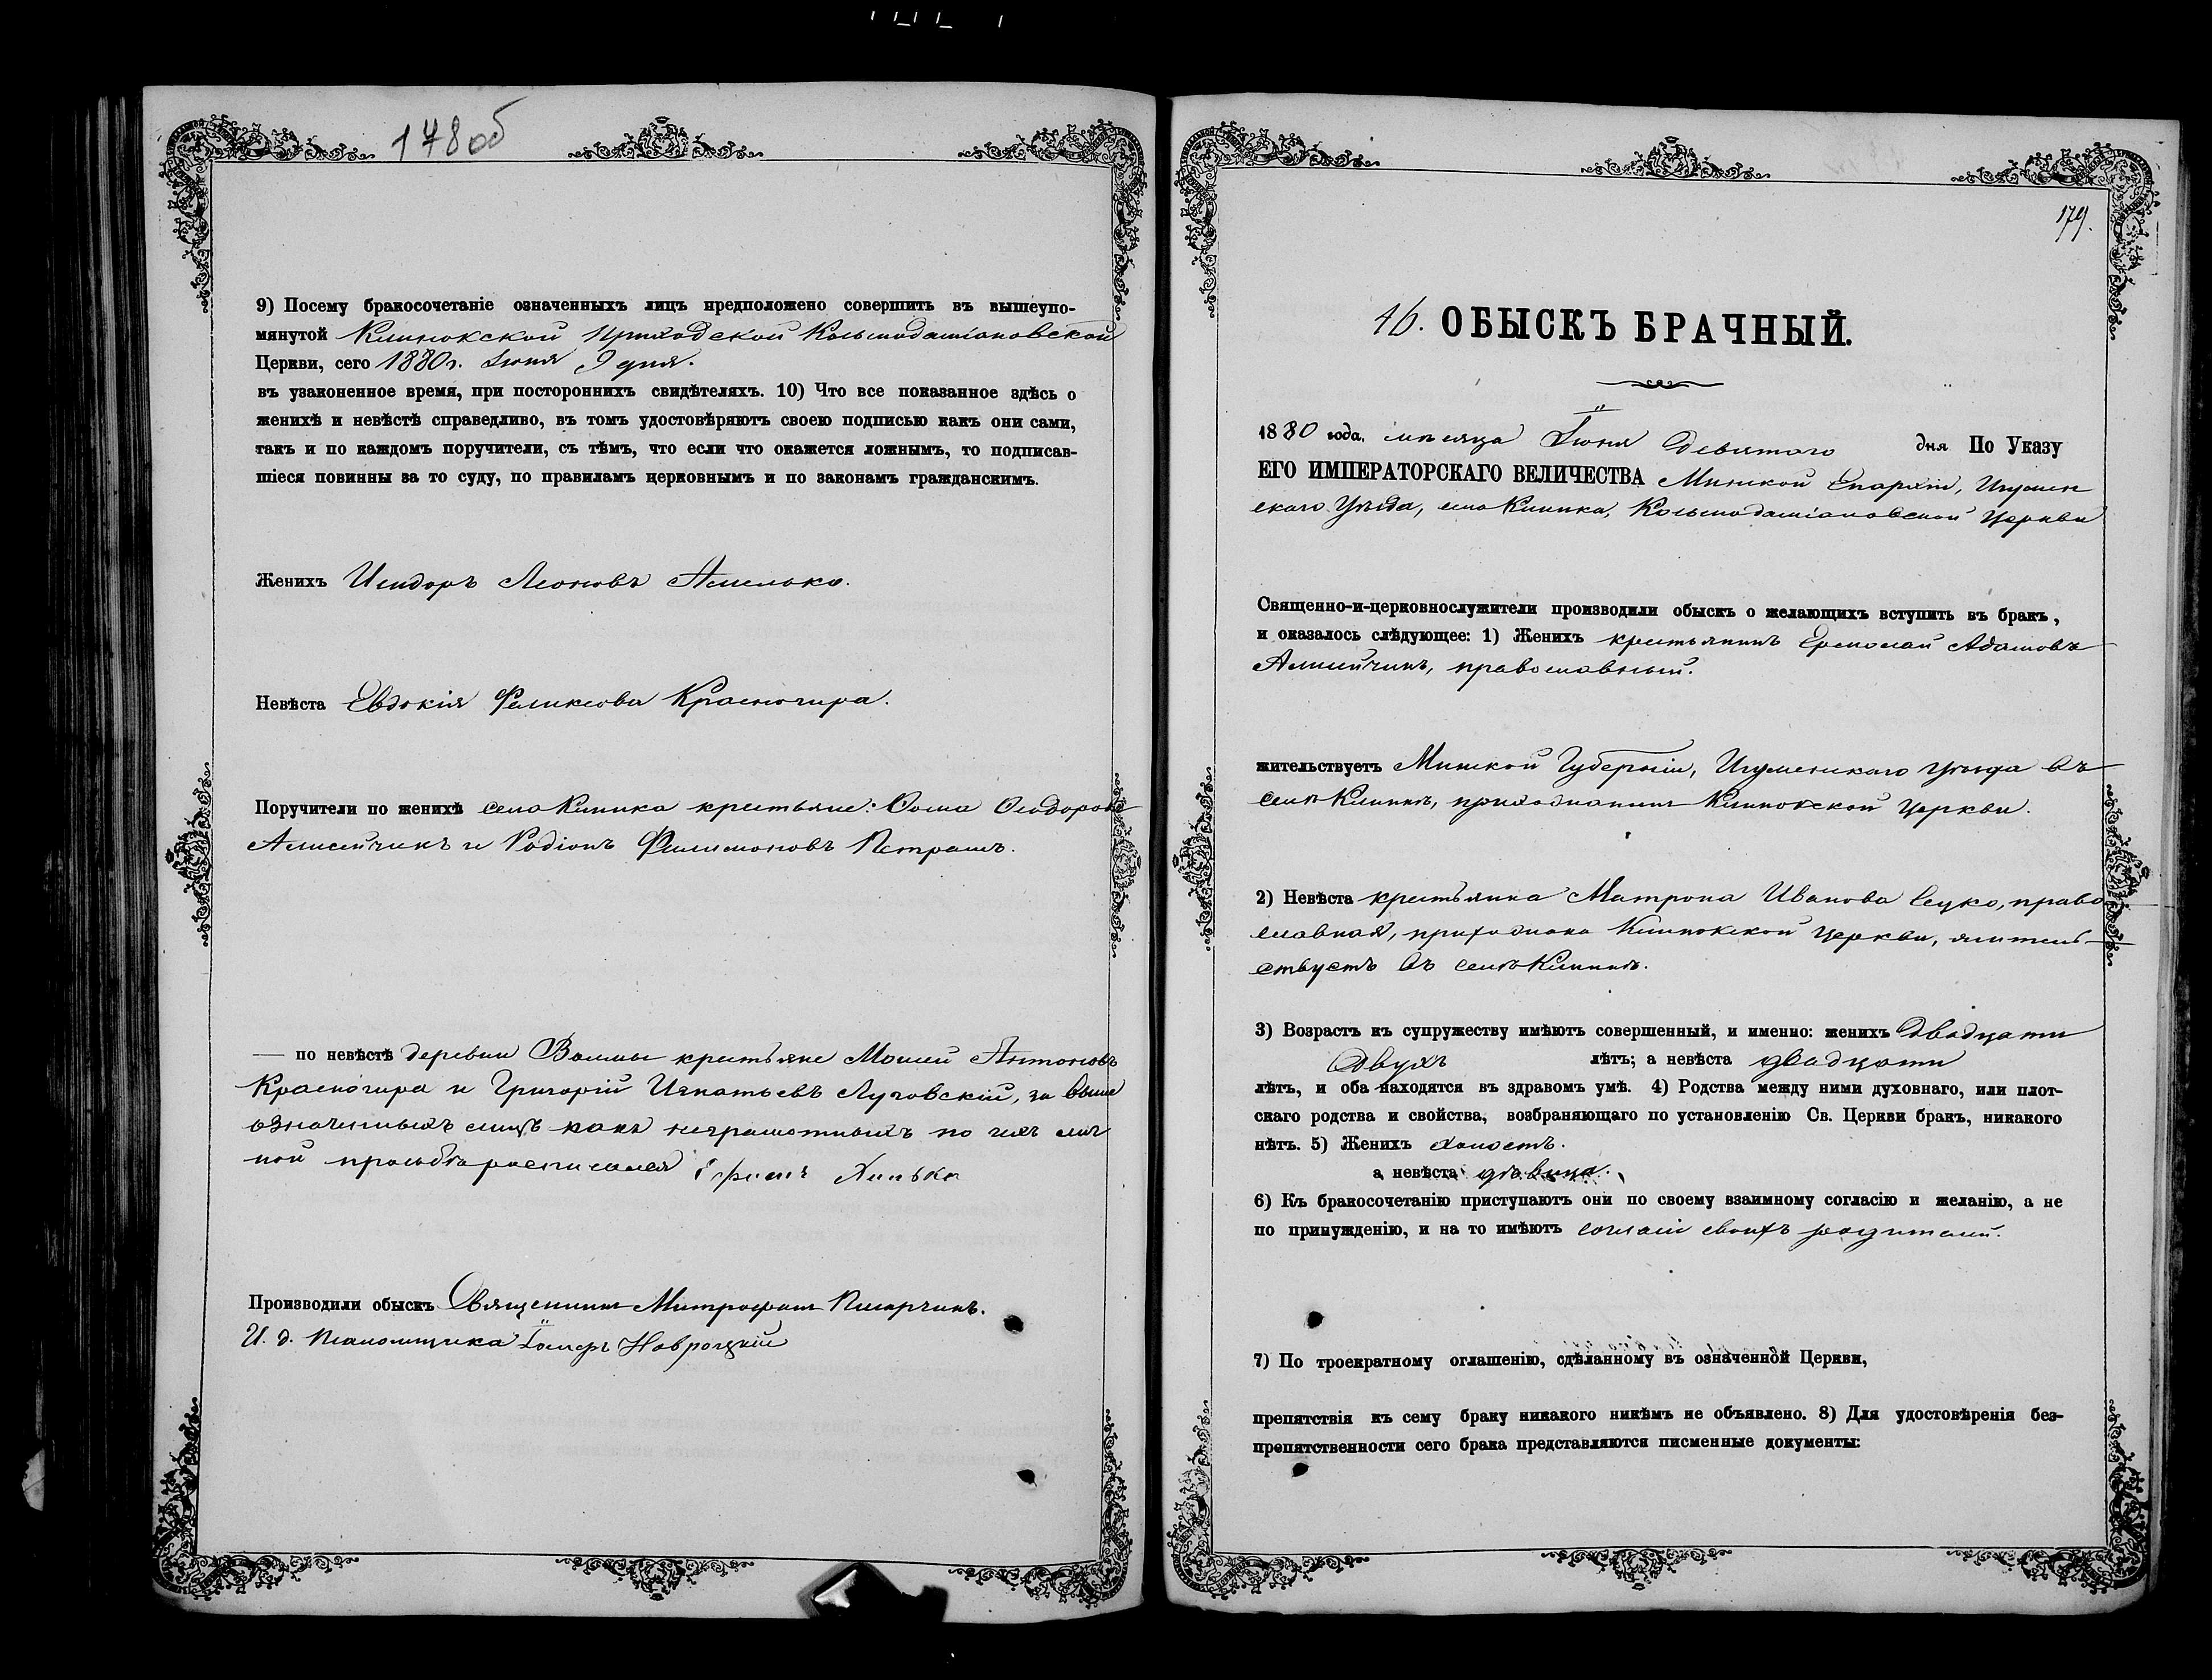 178об
9) Посему бракосочетаніе означенныхъ лицъ предположено совершить въ вышеупо-
мянутой Клинокской Приходской Косьмодаміановской
Церкви, сего 1880 г. Іюня 9 дня.
въ узаконенное время, при постороннихъ свидѣтеляхъ. 10) Что все показанное здѣсь о
женихѣ и невѣстѣ справедливо, въ томъ удостовѣряютъ своею подписью какъ они сами,
такъ и по каждомъ поручители, съ тѣмъ, что если что окажется ложнымъ, то подписав-
шіеся повинны за то суду, по правиламъ церковнымъ и по законамъ гражданскимъ.
Женихъ Исидоръ Леоновъ
Невѣста Евдокія Феликсова Красногира.
Поручители по женихѣ села Клинка крестьяне: Ѳома Ѳеодоровъ
Алисейчикъ и Родіонъ Филимоновъ Петрашъ.
— по невѣстѣ деревни крестьяне Моисей Антоновъ
Красногира и Григорій Игнатьевъ Луговскій, за выше
означенныхъ лицъ какъ неграмотныхъ по ихъ лич
ной прозьбѣ росписался
Производили обыскъ Священникъ Митрофанъ Писарчикъ.
И. д. Псаломщика Іосифъ Новроцкій
179.
16. ОБЫСКЪ БРАЧНЫЙ.
1880 года, мѣсяца Іюня Девятаго дня По Указу
ЕГО ИМПЕРАТОРСКАГО ВЕЛИЧЕСТВА Минской Епархіи, Игумен
скаго Уѣзда, села Клинка, Косьмодаміановской Церкви
Священно-и-церковнослужители производили обыскъ о желающихъ вступить въ бракъ,
и оказалось слѣдующее: 1) Женихъ крестьянинъ Ермолай Адамовъ
Алисейчикъ, православный.
жительствуетъ Минской Губерніи, Игуменскаго уѣзда въ
селѣ Клинкѣ, прихожанинъ Клинокской Церкви.
2) Невѣста крестьянка Матрона Иванова Сецко, право
славная, прихожана Клинокской Церкви, жительст
ствуетъ въ селѣ Клинкѣ.
3) Возрастъ къ супружеству имѣютъ совершенный, и именно: женихъ двадцати
двухъ лѣтъ; а невѣста двадцати
лѣтъ, и оба находятся въ здравомъ умѣ. 4) Родства между ними духовнаго, или плот-
скаго родства и свойства, возбраняющаго по установленію Св. Церкви бракъ, никакого
нѣтъ. 5) Женихъ холостъ.
а невѣста дѣвица.
6) Къ бракосочетанію приступаютъ они по своему взаимному согласію и желанію, а не
по принужденію, и на то имѣютъ согласіе своихъ родителей.
7) По троекратному оглашенію, сдѣланному въ означенной Церкви,
препятствія къ сему браку никакого никѣмъ не объявлено. 8) Для удостовѣренія без-
препятственности сего брака представляются писменные документы: